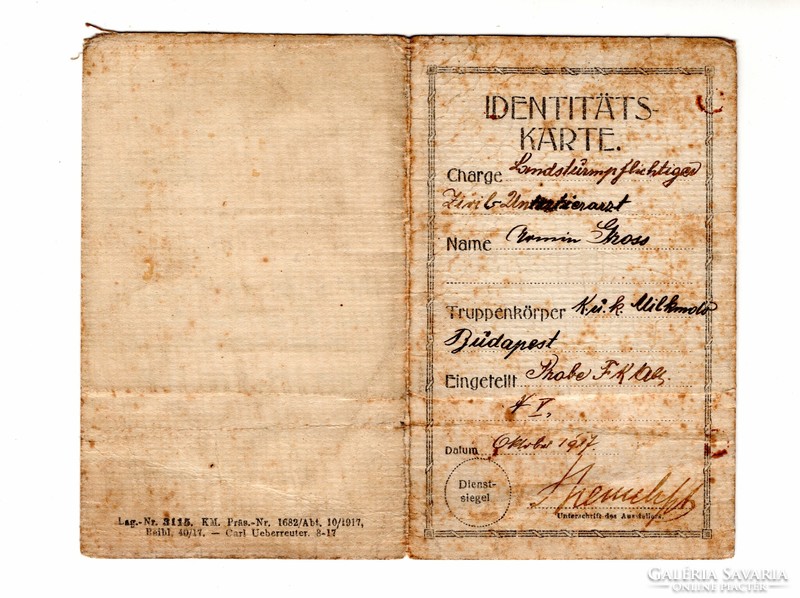 IDENTITÄTS-
KARTE.
Charge Landsturmpflichtiger
Zivil-Untertierarzt
Name Armin Gross
Truppenkörper K.u.k. Milkmdo
Budapest
Eingeteilt Probe
V,
Datum Oktober 1917
Dienst-
siegel
Unterschrift des Ausstellers.
Lag.-Nr. 3115. KM. Präs.-Nr. 1682/Abt. 10/1917,
Beibl. 40/17. — Carl Ueberreuter. 8-17
GALÉRIA SAVARIA
ONLINE PIACTÉR